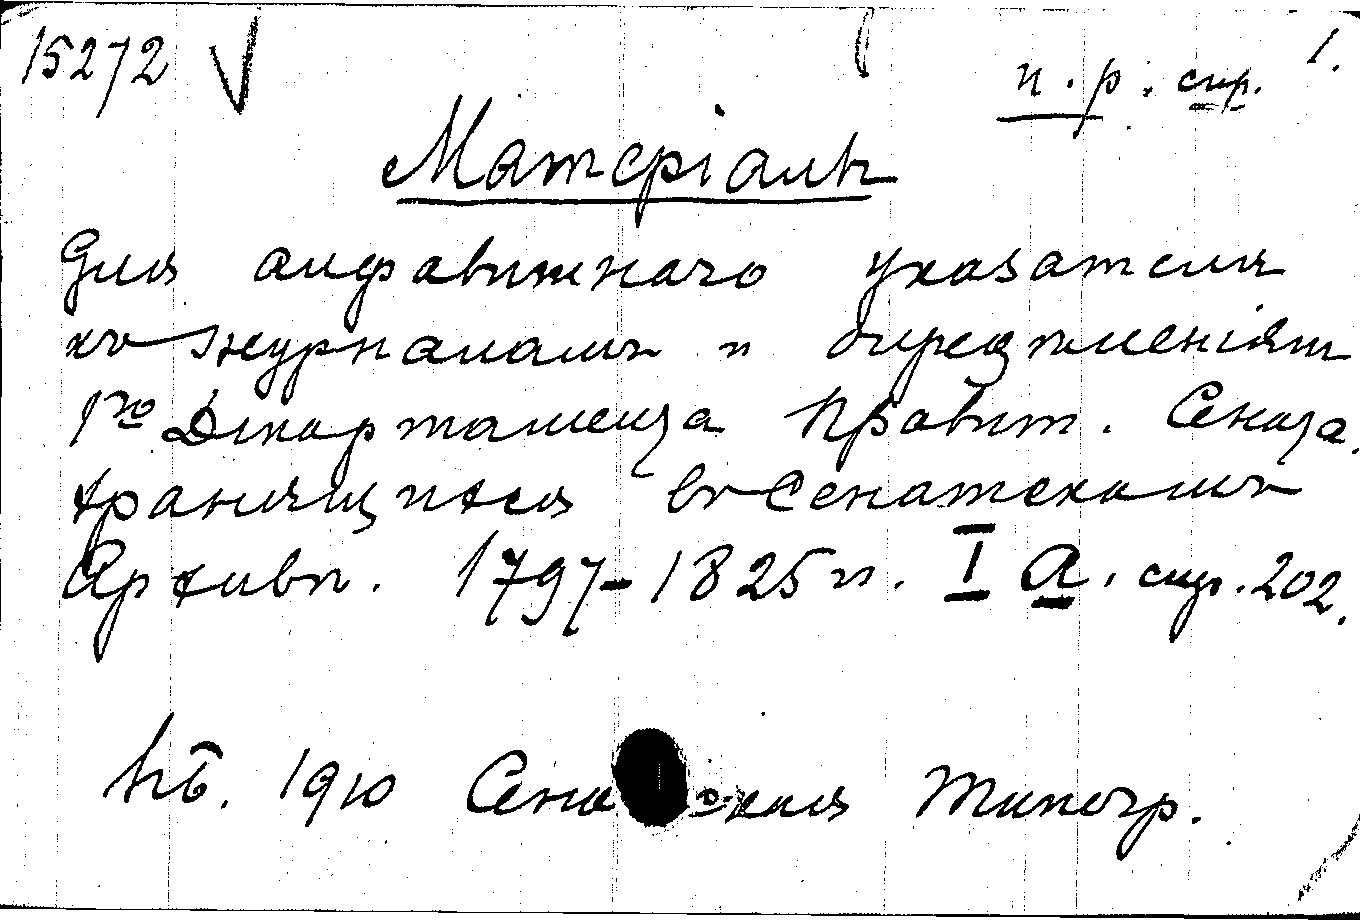 15272 п. р. стр. 1.
Матеріалъ
для алфавитнаго указателя
къ журналамъ и опредѣленіям
1го Департамента Правит. Сената.
хранящихся въ Сенатскомъ
Архивѣ. 1797-1825 гг. I А. стр. 202.
Пб. 1910 Сена ская Типогр.